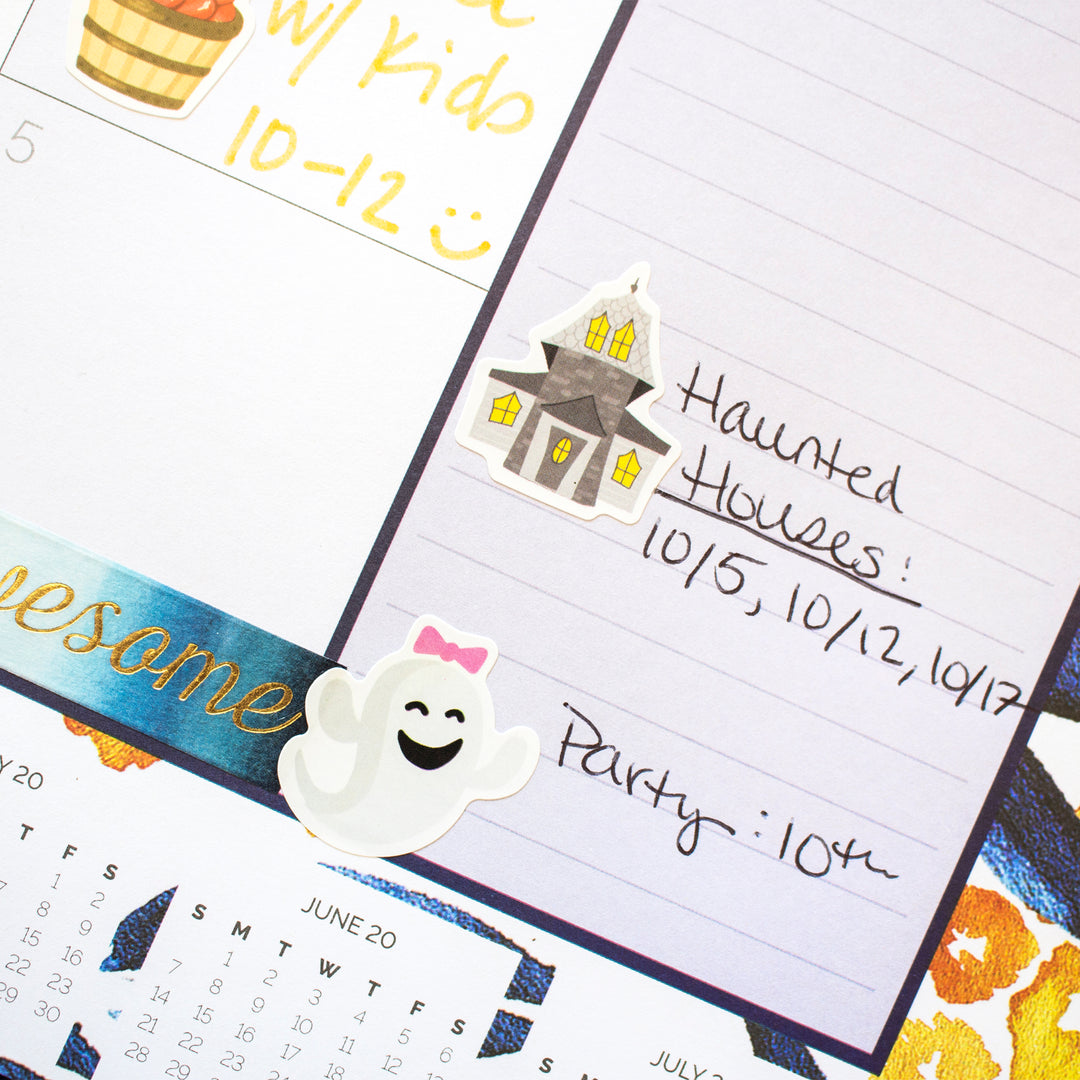 w/ Kids
10-12
5
Haunted
Houses:
10/5, 10/12, 10/17
Party: 10th
esome
Y 20
T F S
1 2
7 8 9
15 16
22 23
29 30
JUNE 20
S M T W T F S
1 2 3 4 5 6
7 8 9 10 11 12
14 15 16 17 18
21 22 23
28 29
JULY 2
S